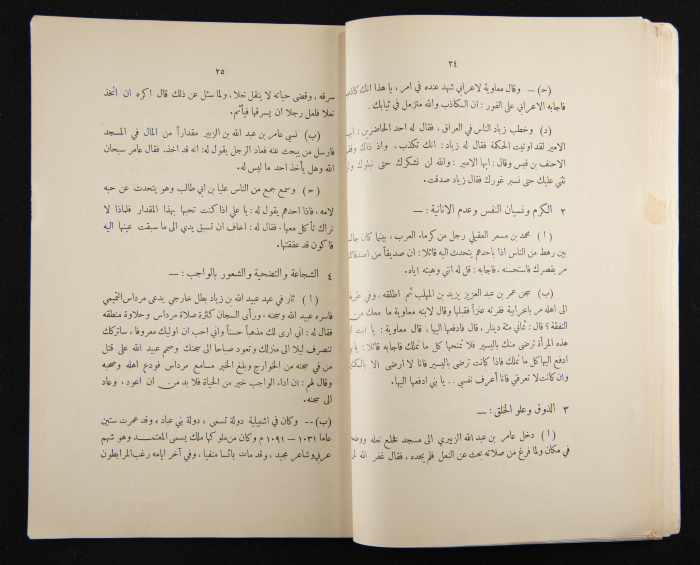 ٢٤
(ح) — وقال معاوية لاعرابي شهد عنده في امر ، يا هذا انك كاذب
فاجابه الاعرابي على الفور : ان الكاذب والله متزمل في ثيابك .
(د) وخطب زياد الناس في العراق ، فقال له احد الحاضرين : ايها
الامير لقد اوتيت الحكمة فقال له زياد : انك تكذب ، واذ ذاك وقف
الاحنف بن قيس وقال : ايها الامير : والله لن نشكرك حتى نبلوك ولن
نثني عليك حتى نسبر غورك فقال زياد صدقت .
٢ الكرم ونسيان النفس وعدم الانانية : —
(ا) محمد بن مسعر العقيلي رجل من كرماء العرب ، بينما كان جالسا
بين رهط من الناس اذا باحدهم يتحدث اليه قائلا : ان صديقاً من اصدقائك
مر بقصرك فاستحسنه ، فاجابه : قل له انني وهبته اياه .
(ب) سجن عمر بن عبد العزيز يزيد بن المهلب ثم اطلقه ، وفي طريقه
الى اهله مر باعرابية فقرته عنزاً فقبلها وقال لابنه معاوية ما معك من
النفقة ؟ قال : ثماني مئة دينار ، قال فادفعها اليها ، قال معاوية : يا ابت ان
هذه المرأة ترضى منك باليسير فلا تمنحها كل ما تملك فاجابه قائلا : يا
ادفع اليها كل ما تملك فاذا كانت ترضى باليسير فانا لا ارضى الا بالكثير
وان كانت لا تعرفني فانا أعرف نفسي .. يا بني ادفعها اليها .
٣ الذوق وعلو الخلق : —
(ا) دخل عامر بن عبد الله الزبيري الى مسجد فخلع نعله ووضعه
في مكان ولما فرغ من صلاته بحث عن النعل فلم يجده ، فقال غفر الله لمن
٢٥
سرقه ، وقضى حياته لا ينقل نعلا ، ولما سئل عن ذلك قال اكره ان اتخذ
نعلا فلعل رجلا ان يسرقها فيأثم .
(ب) نسي عامر بن عبد الله بن الزبير مقداراً من المال في المسجد
فارسل من يبحث عنه فعاد الرجل يقول له : انه قد اخذ . فقال عامر سبحان
الله وهل يأخذ احد ما ليس له .
(ح) وسمع جمع من الناس عليا بن ابي طالب وهو يتحدث عن حبه
لامه ، فاذا احدهم يقول له : يا علي اذا كنت تحبها بهذا المقدار فلماذا لا
نراك تأكل معها ، فقال له : اخاف ان تسبق يدي الى ما سبقت عينها اليه
فاكون قد عققتها .
٤ الشجاعة والتضحية والشعور بالواجب : —
(ا) ثار في عهد عبيد الله بن زياد بطل خارجي يدعى مرداس التميمي
فاسره عبيد الله وسجنه ، ورأى السجان كثرة صلاة مرداس وحلاوة منطقه
فقال له : اني ارى لك مذهباً حسناً واني احب ان اوليك معروفا ، ساتركك
تنصرف ليلا الى منزلك وتعود صباحا الى سجنك وصمم عبيد الله على قتل
من في سجنه من الخوارج وبلغ الخبر مسامع مرداس فودع اهله وصحبه
وقال لهم : ان اداء الواجب خير من الحياة فلا بد من ان اعود ، وعاد
الى سجنه .
(ب) — وكان في اشبيلية دولة تسمى « دولة بني عباد » وقد عمرت ستين
عاما ١٠٣١ — ١٠٩١ م وكان من ملوكها ملك يسمى المعتمد وهو شهم
عربي وشاعر مجيد ، وقد مات بائسا منفيا ، وفي آخر ايامه رغب المرابطون